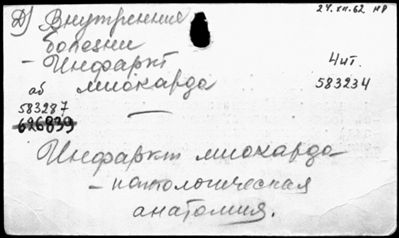 Д) Внутренние
болезни
- Инфаркт
миокарда
24.XII.62 НР
Чит.
583234
аб
583287
626839
Инфаркт миокарда
- патологическая
анатомия.